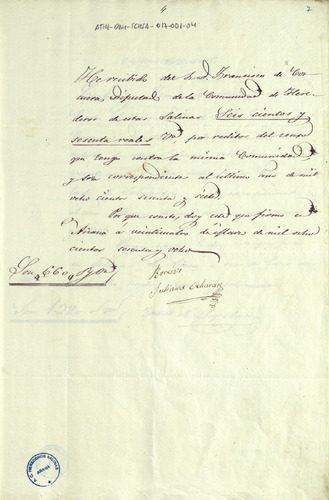 4
7
ATHA-DAH-FCHSA-017-001-04
He recibido del S. D. Francisco de
Diputado de la Comunidad de Here-
deros de estas Salinas Seis cientos y
sesenta reales Vn por reditos del censo
que tengo contra la misma Comunidad
y son correspondientes al ultimo año de mil
ocho cientos sesenta y siete.
Por que conste, doy este que firmo en
Añana a veintiuno de de mil ocho
cientos sesenta y ocho
Son 660 rs. Vn
Recivi
Juliana
AÑANA